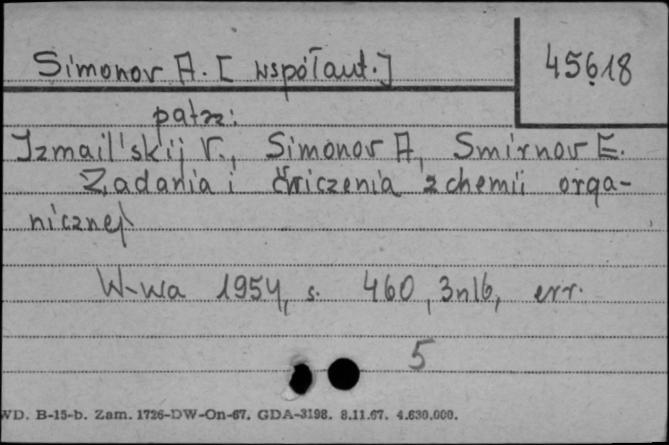 Simonov A. [współaut.]
45618
patrz:
Izmail'skij V., Simonov A, Smirnov E.
Zadania i ćwiczenia z chemii orga-
nicznej
W-wa 1954, s. 460, 3nlb, err.
5
WD. B-15-b. Zam. 1726-DW-On-67. GDA-3198. 8.11.67. 4.630.000.